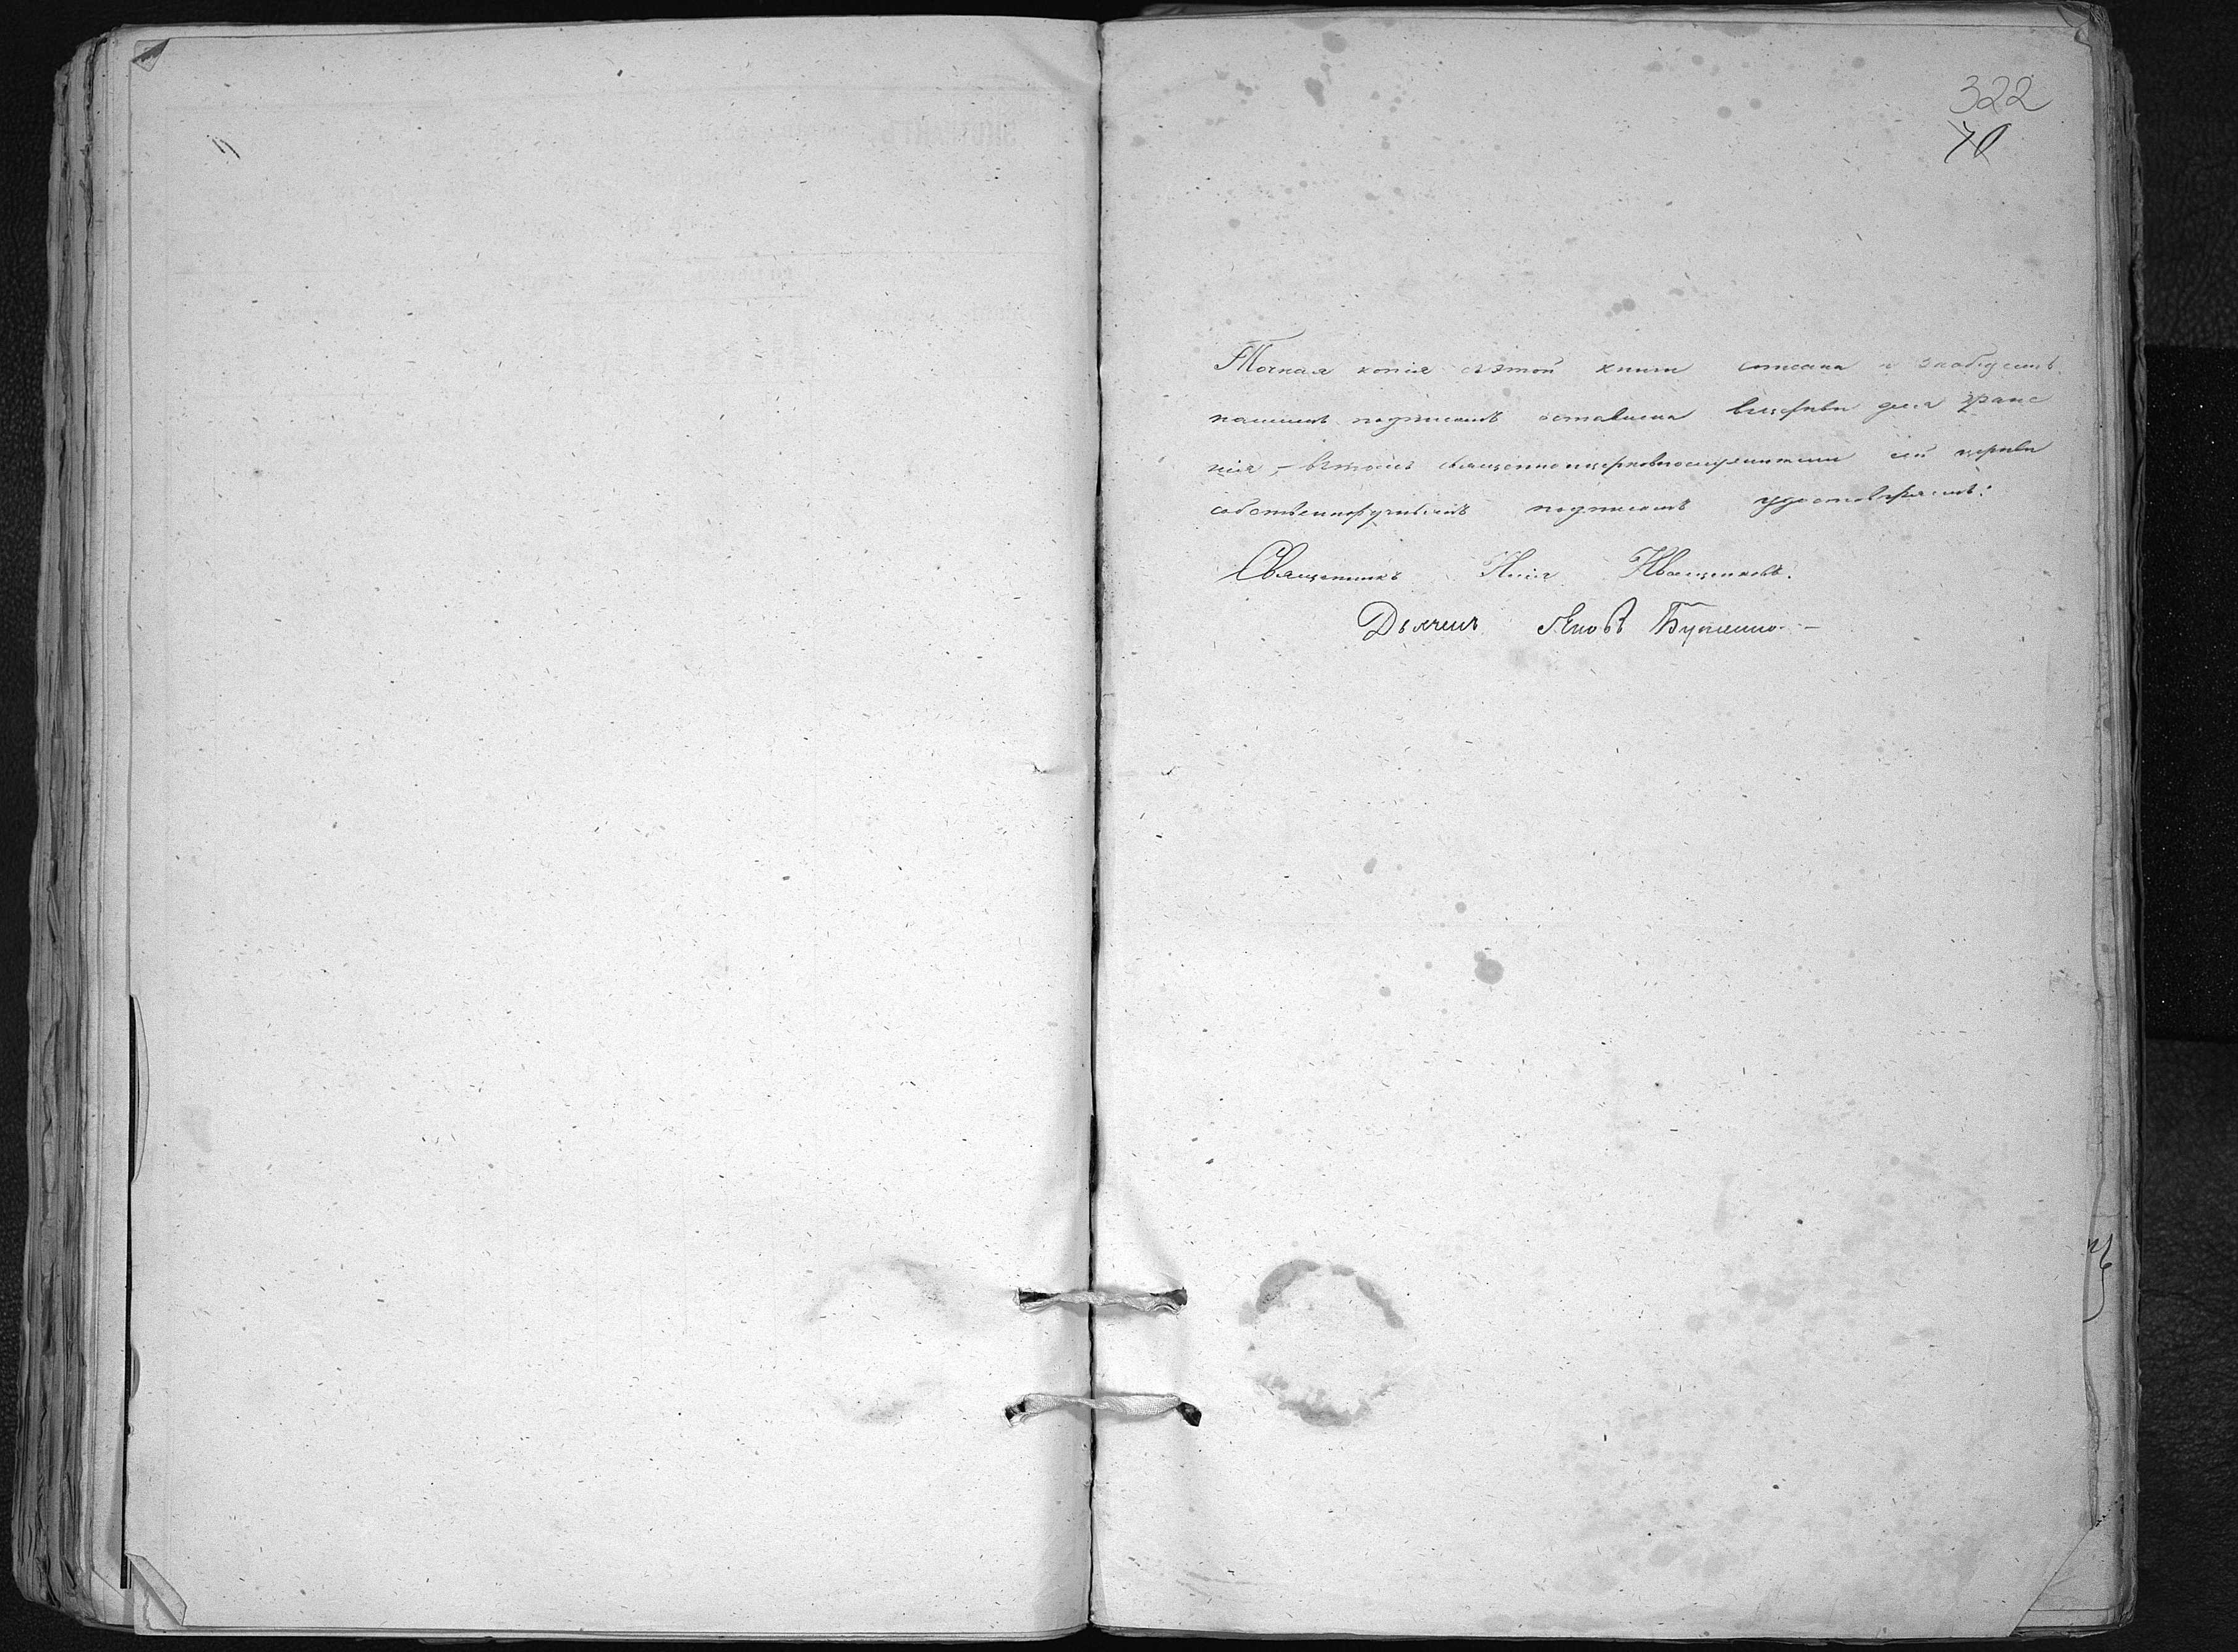 322
70
Точная копія съ этой книги списана и за общимъ
нашимъ подписомъ оставлена въ церкви для хране
нія, – въ томъ священноицерковнослужители сей церкви
собственноручнымъ подписомъ удостовѣряемъ:
Священникъ Илія Иващенковъ.
Дьячекъ Яковъ